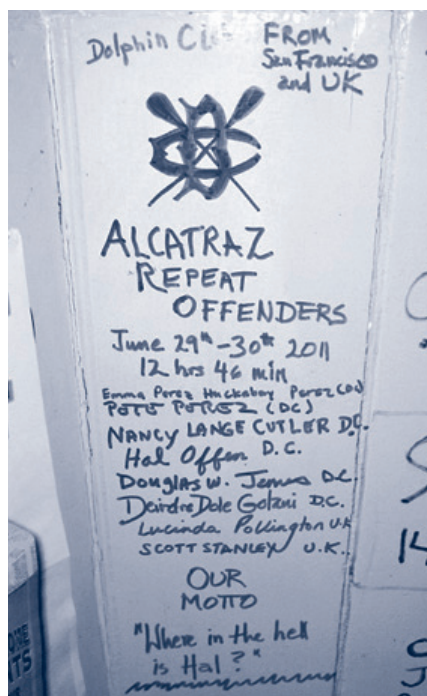 Dolphin
FROM
San Francisco
and UK
ALCATRAZ
REPEAT
OFFENDERS
June 29th-30th 2011
12 hrs 46 min
Emma Perez Huckabay Perez (DC)
PETE PEREZ (DC)
NANCY LANGE CUTLER D.C.
Hal Offen D.C.
Douglas W. James D.C.
Deirdre Dole Golani D.C.
Lucinda Pollington U.K
SCOTT STANLEY U.K.
OUR
MOTTO
"Where in the hell
is Hal?"
14